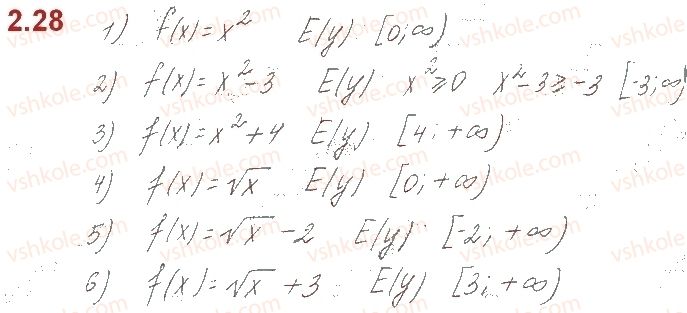 2.28 1) f(x) = x² E(y) [0; ∞)
2) f(x) = x² - 3 E(y) x² ≥ 0 x² - 3 ≥ -3 [-3; ∞)
3) f(x) = x² + 4 E(y) [4; +∞)
4) f(x) = √x E(y) [0; +∞)
5) f(x) = √x - 2 E(y) [-2; +∞)
6) f(x) = √x + 3 E(y) [3; +∞)